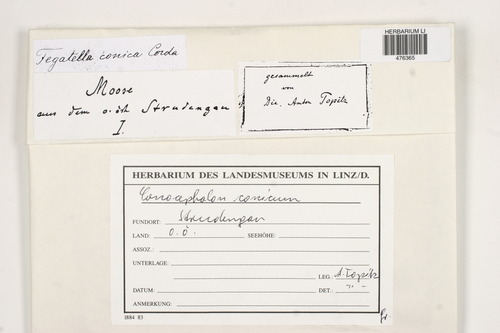 Tegatella conica Corda
HERBARIUM LI
476365
Moose
aus dem o.öst. Strudengau
I.
gesammelt
von
Dir. Anton Topitz
HERBARIUM DES LANDESMUSEUMS IN LINZ/D.
Conocephalon conicum
FUNDORT: Strudengau
LAND: O.Ö. SEEHÖHE:
ASSOZ.:
UNTERLAGE:
LEG.: A. Topitz
DATUM: DET.: -"-
ANMERKUNG:
I884 83